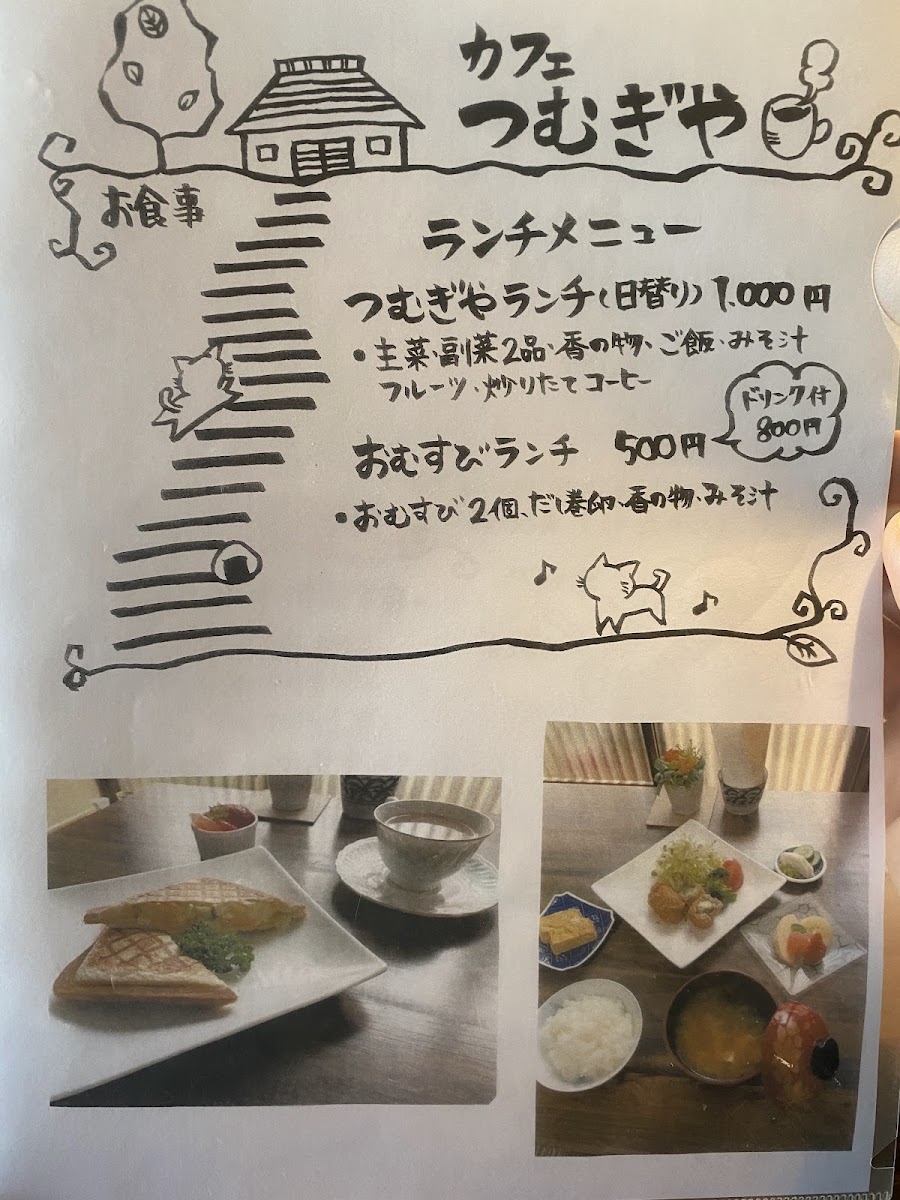 カフェ
つむぎや
お食事
ランチメニュー
つむぎやランチ(日替り) 1.000円
・主菜・副菜2品・香の物・ご飯・みそ汁
フルーツ・炒りたてコーヒー
おむすびランチ 500円
ドリンク付
800円
・おむすび2個、だし巻卵、香の物・みそ汁